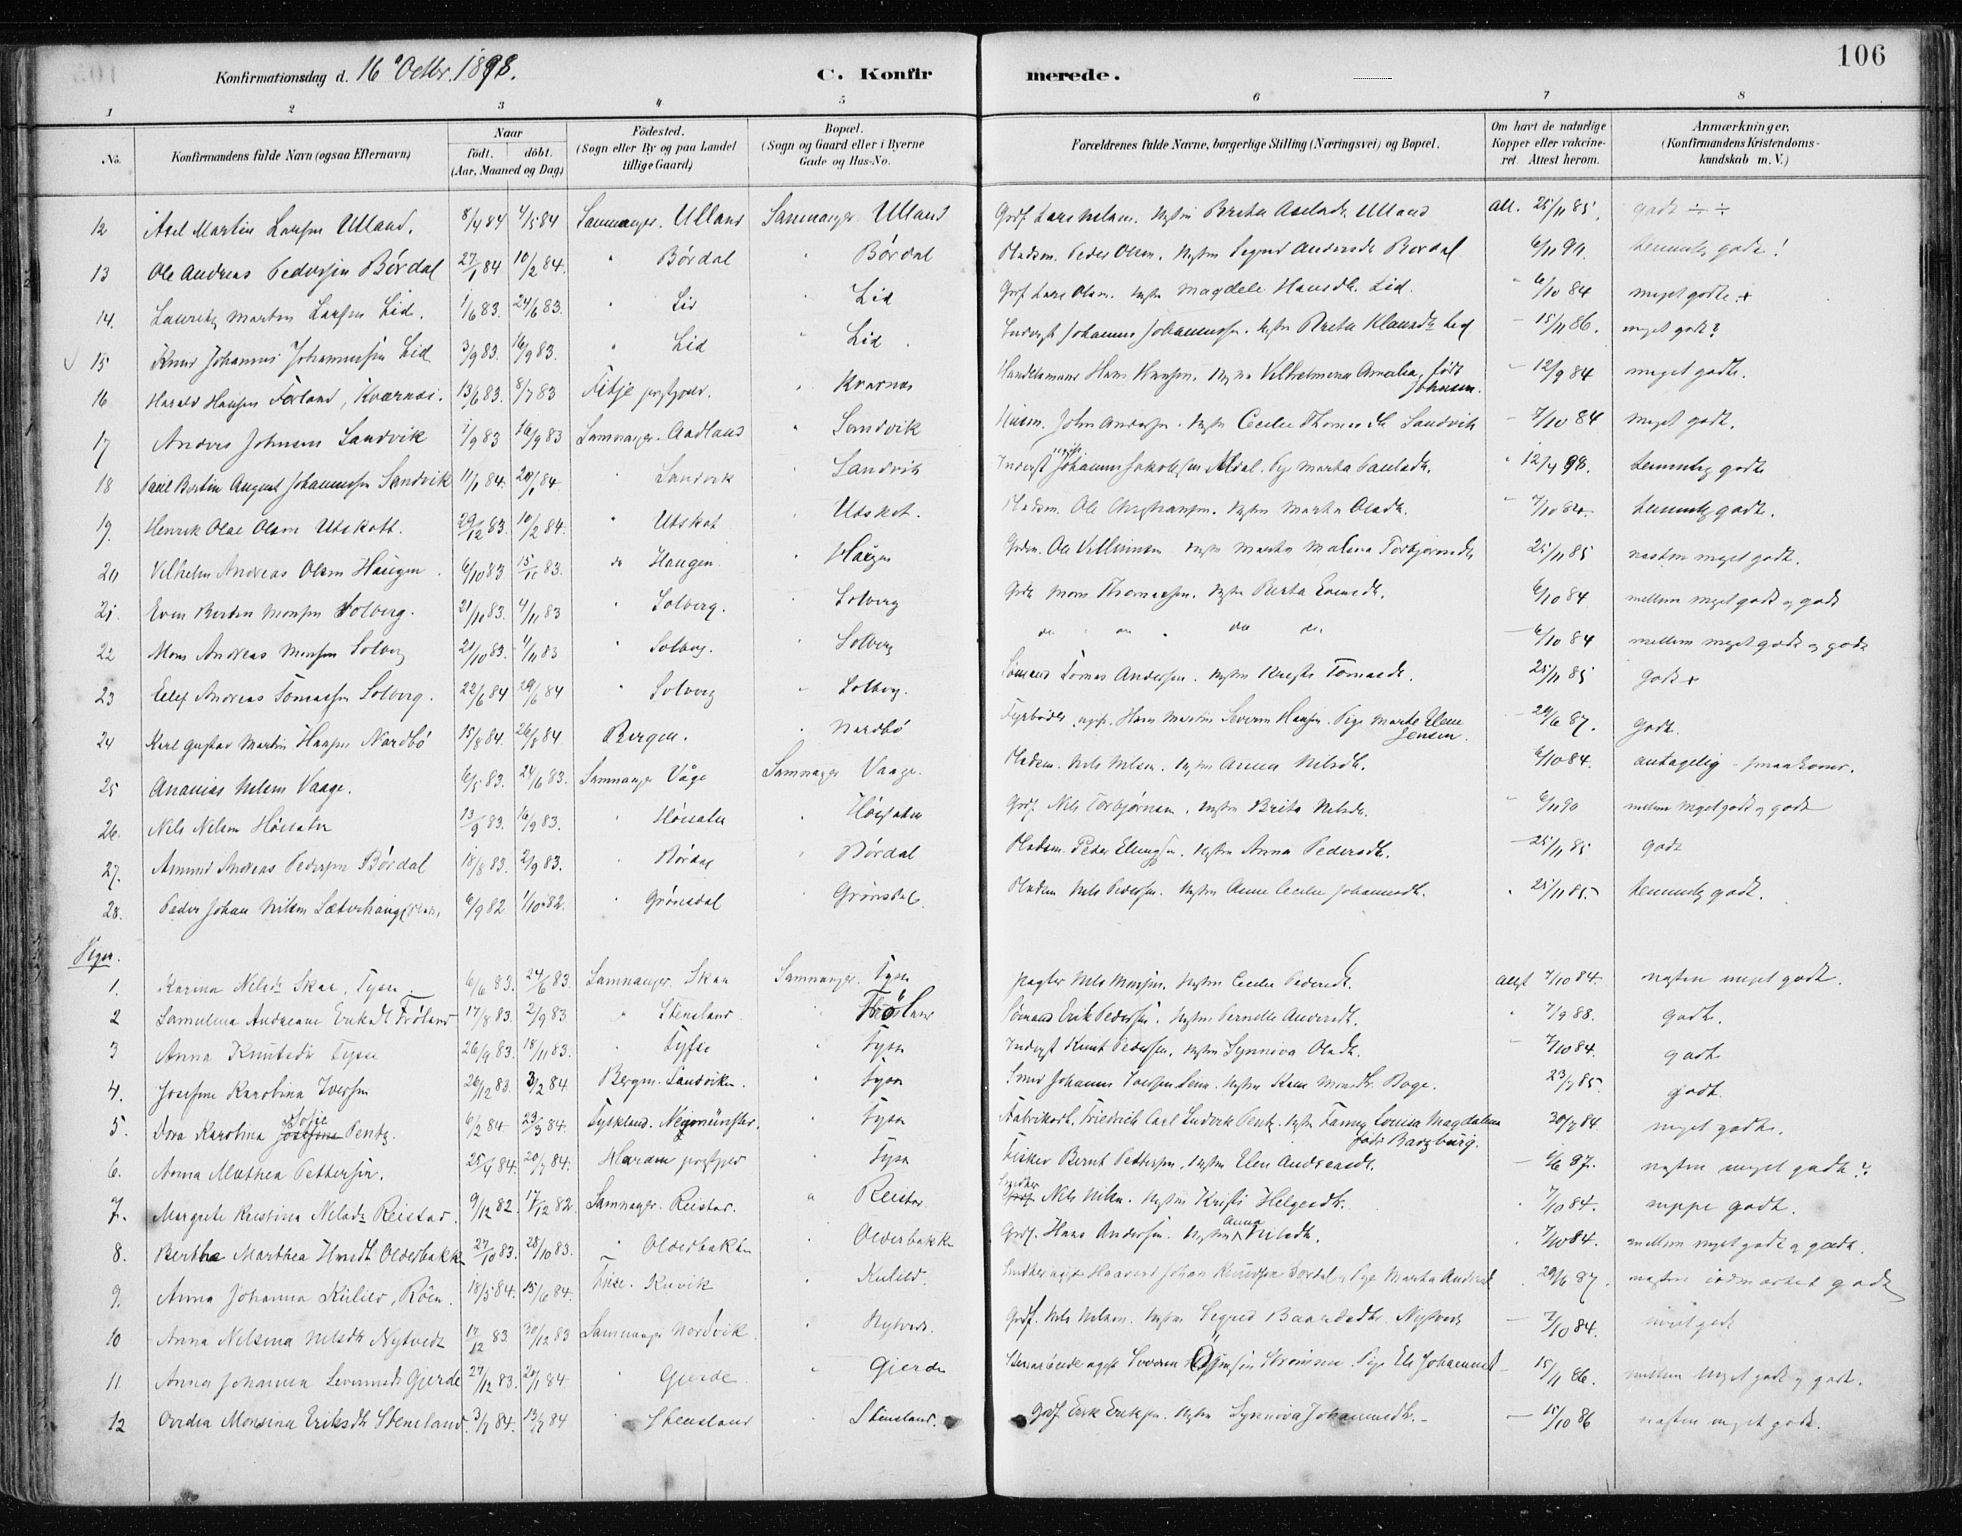 106
Konfirmationsdag d. 16de Octbr. 1898. C. Konfirmerede.
1 2 3 4 5 6 7 8
No. Konfirmandens fulde Navn (ogsaa Efternavn) Naar født. døbt. (Aar, Maaned og Dag) Fødested. (Sogn eller By og paa Landet tillige Gaard) Bopæl. (Sogn og Gaard eller i Byerne Gade og Hus-No. Forældrenes fulde Navne, borgerlige Stilling (Næringsvei) og Bopæl. Om havt de naturlige Kopper eller vakcineret. Attest herom. Anmærkninger. (Konfirmandens Kristendomskundskab m. V.)
12 Axel Martin Larsen Ulland. 8/4 84 4/5 84 Samnanger. Ulland Samnanger Ulland Gbrf. Lars Nelsen. Brita Axelsdt. Ulland att. 25/11 85. godt
13 Ole Andreas Pedersen Børdal 27/1 84 10/2 84. " Børdal " Børdal Pladsm. Peder Olsen. Sigrid Andersdt Børdal 6/11 91. temmelig godt!
14. Lauritz Martin Larsen Lid. 1/6 83. 24/6 83. " Lid " Lid Gbrf Lars Olsen. Magdele Hansdt. Lid. 6/10 84 meget godt. +
15 Knud Johannes Johannessen Lid 3/9 83. 16/9 83. " Lid " Lid. Inderst Johannes Johannessen. Brita Klausdt Lid 15/11 86. meget godt?
16 Harald Hansen Førland, Kværnæs. 13/6 83. 8/7 83 Fitje prstgjeld. " Kvernæs Handelsmand Hans Hansen. Vilhelmina Amalia, født Johnsen. 12/9 84 meget godt.
17 Anders Johnsen Sandvik 1/9 83 16/9 83 Samnanger. Aadland " Sandvik Husm. John Andersen. Cecilie Thomasdt Sandvik 7/10 84 meget godt.
18 Paul Bertin August Johannessen Sandvik 11/1 84. 20/1 84 " Sandvik " Sandvik Inderst Johannes Jakobsen Aldal. Pige Marta Paulsdt. 12/4 98. temmelig godt
19. Henrik Olai Olsen Utskott. 29/12 83. 10/2 84. " Utskot " Utskot. Pladsm. Ole Christiansen. Marta Olsdt. 7/10 84. temmelig godt.
20 Vilhelm Andreas Olsen Haugen. 6/10 83 15/11 83. do Haugen. " Haugen Gbrm. Ole Villumsen Marta Malena Torbjørnsdt 25/11 85 næsten meget godt.
21. Even Bertin Monsen Solberg. 21/10 83. 4/11 83 " Solberg. " Solberg Gbrf. Mons Thomassen. Berta Evensdt. 6/10 84 mellem meget godt og godt
22 Mons Andreas Monsen Solberg 21/10 83. 4/11 83 " Solberg. " Solberg do do do do 6/10 84 mellem meget godt og godt
23 Andreas Tomassen Solberg. 22/6 84 29/6 84 " Solberg " Solberg. Sømand Tomas Andersen. Tomasdt. 25/11 85 godt +
24 Karl Gustav Martin Hansen Nordbø 15/8 84. 26/8 84. Bergen. " Nordbø Fyrbøder ugift Hans Martin Severin Hansen. Pige Marte Elene Jensen. 24/6 87. godt.
25 Ananias Nelsen Vaage. 6/5 83. 24/6 83. Samnanger Våge Samnanger Vaage. Pladsm. Nels Nelsen. Anna Nelsdt. 6/10 84. antagelig
26. Nels Nelsen Høisæter 13/9 83. 16/9 83. " Høisæter " Høisæter Gbrf. Nels Torbjørnsen. Brita Nelsdt. 6/11 90 mellem meget godt og godt
27. Amund Andreas Pedersen Børdal 18/8 83. 2/9 83. " Børdal " Børdal Pladsm. Peder Ellingsen. Anna Pedersdt. 25/11 85 godt
28. Peder Johan Nilsen Sæterhaug 6/9 82 1/10 82. " Grønsdal " Grønsdal. Pladsm Nels Pedersen. Anne Cecilie Johannesdt. 25/11 85. temmelig godt.
Piger.
1. Karina Nelsdt Skar, Tysse. 6/6 83. 24/6 83. Samnanger. Skar Samnanger. Tysse Nels Monsen. Cecilie Pedersdt. attest 7/10 84. næsten meget godt.
2 Samuline Andreane Eriksdt Frøland 17/8 83. 2/9 83. " Stensland " Frøland Sømand Erik Pedersen. Pernelle Andersdt. 7/9 88. godt.
3 Anna Knutsdt Tysse 26/9 83. 18/11 83. " Tysse " Tysse Inderst Knut Pedersen. Synneva Olsdt. 7/10 84. godt
4. Josefine Karolina Iversen 26/12 83. 3/2 84. Bergen. Sandviken. " Tysse Smed Johannes Iversen Monsdt. Bøge. 23/7 85. godt.
5. Dora Karolina Josefine Sofie Pentz. 6/2 84. 23/3 84. Tyskland. Neumünster. " Tysse Fabrikarb. Friedrich Carl Ludvik Pentz. Fanny Louisa Magdalena født Barzburg. 30/7 84. meget godt.
6. Anna Mathea Pettersen. 25/4 84. 20/7 84. Haram prstgjeld " Tysse Fisker Bernt Pettersen. Elen Andreasdt. 6/6 97. næsten meget godt?
7. Margrete Kristina Nelsdt Reistad. 9/12 82. 17/12 82. Samnanger. Reistad. " Reistad. Snedker Nels Nilsen. Kristi Helgesdt. 7/10 84. neppe godt.
8. Berthe Marthea Hansdt Olderbakke 27/10 83. 28/10 83. " Olderbakken " Olderbakke Gbrf. Hans Andersen. Anna Nelsdt. 7/10 84. mellem meget godt og godt.
9. Anna Johanna Kuliid, Røen. 18/5 84. 15/6 84. Fuse. Kuvik " Kuliid. Snedker ugift Haavard Johan Knudsen Pige Marta Andersdt 29/6 87. næsten udmærket godt
10 Anna Nelsina Nelsdt Nytvedt 17/12 83 30/12 83 Samnanger Nordvik. " Nytvedt. Gbrf. Nels Nelsen. Sigrid Baardsdt. Nytvedt 7/10 84. meget godt
11. Anna Johanna Severinsdt Gjerde 27/12 83. 20/1 84 " Gjerde. " Gjerde Severin Strømmen. Pige Eli Johannesdt 15/11 86. mellem meget godt og godt.
12 Ovidia Monsina Eriksdt Stensland. 3/7 84. 13/7 84 " Stensland " Stensland. Gbrf Erik Eriksen. Synneva Johannesdt. 15/10 86 næsten meget godt.